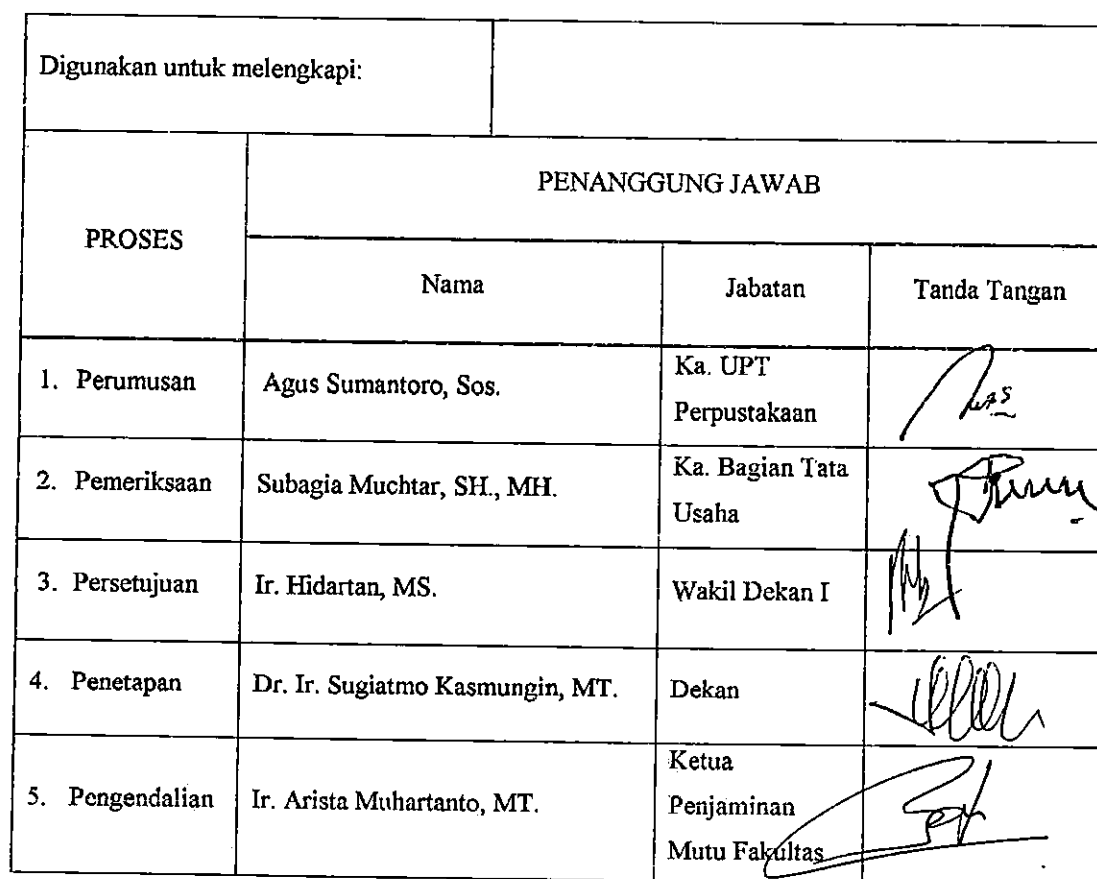 Digunakan untuk melengkapi:
PROSES
PENANGGUNG JAWAB
Nama
Jabatan
Tanda Tangan
1. Perumusan
Agus Sumantoro, Sos.
Ka. UPT
Perpustakaan
2. Pemeriksaan
Subagia Muchtar, SH., MH.
Ka. Bagian Tata
Usaha
3. Persetujuan
Ir. Hidartan, MS.
Wakil Dekan I
4. Penetapan
Dr. Ir. Sugiatmo Kasmungin, MT.
Dekan
5. Pengendalian
Ir. Arista Muhartanto, MT.
Ketua
Penjaminan
Mutu Fakultas